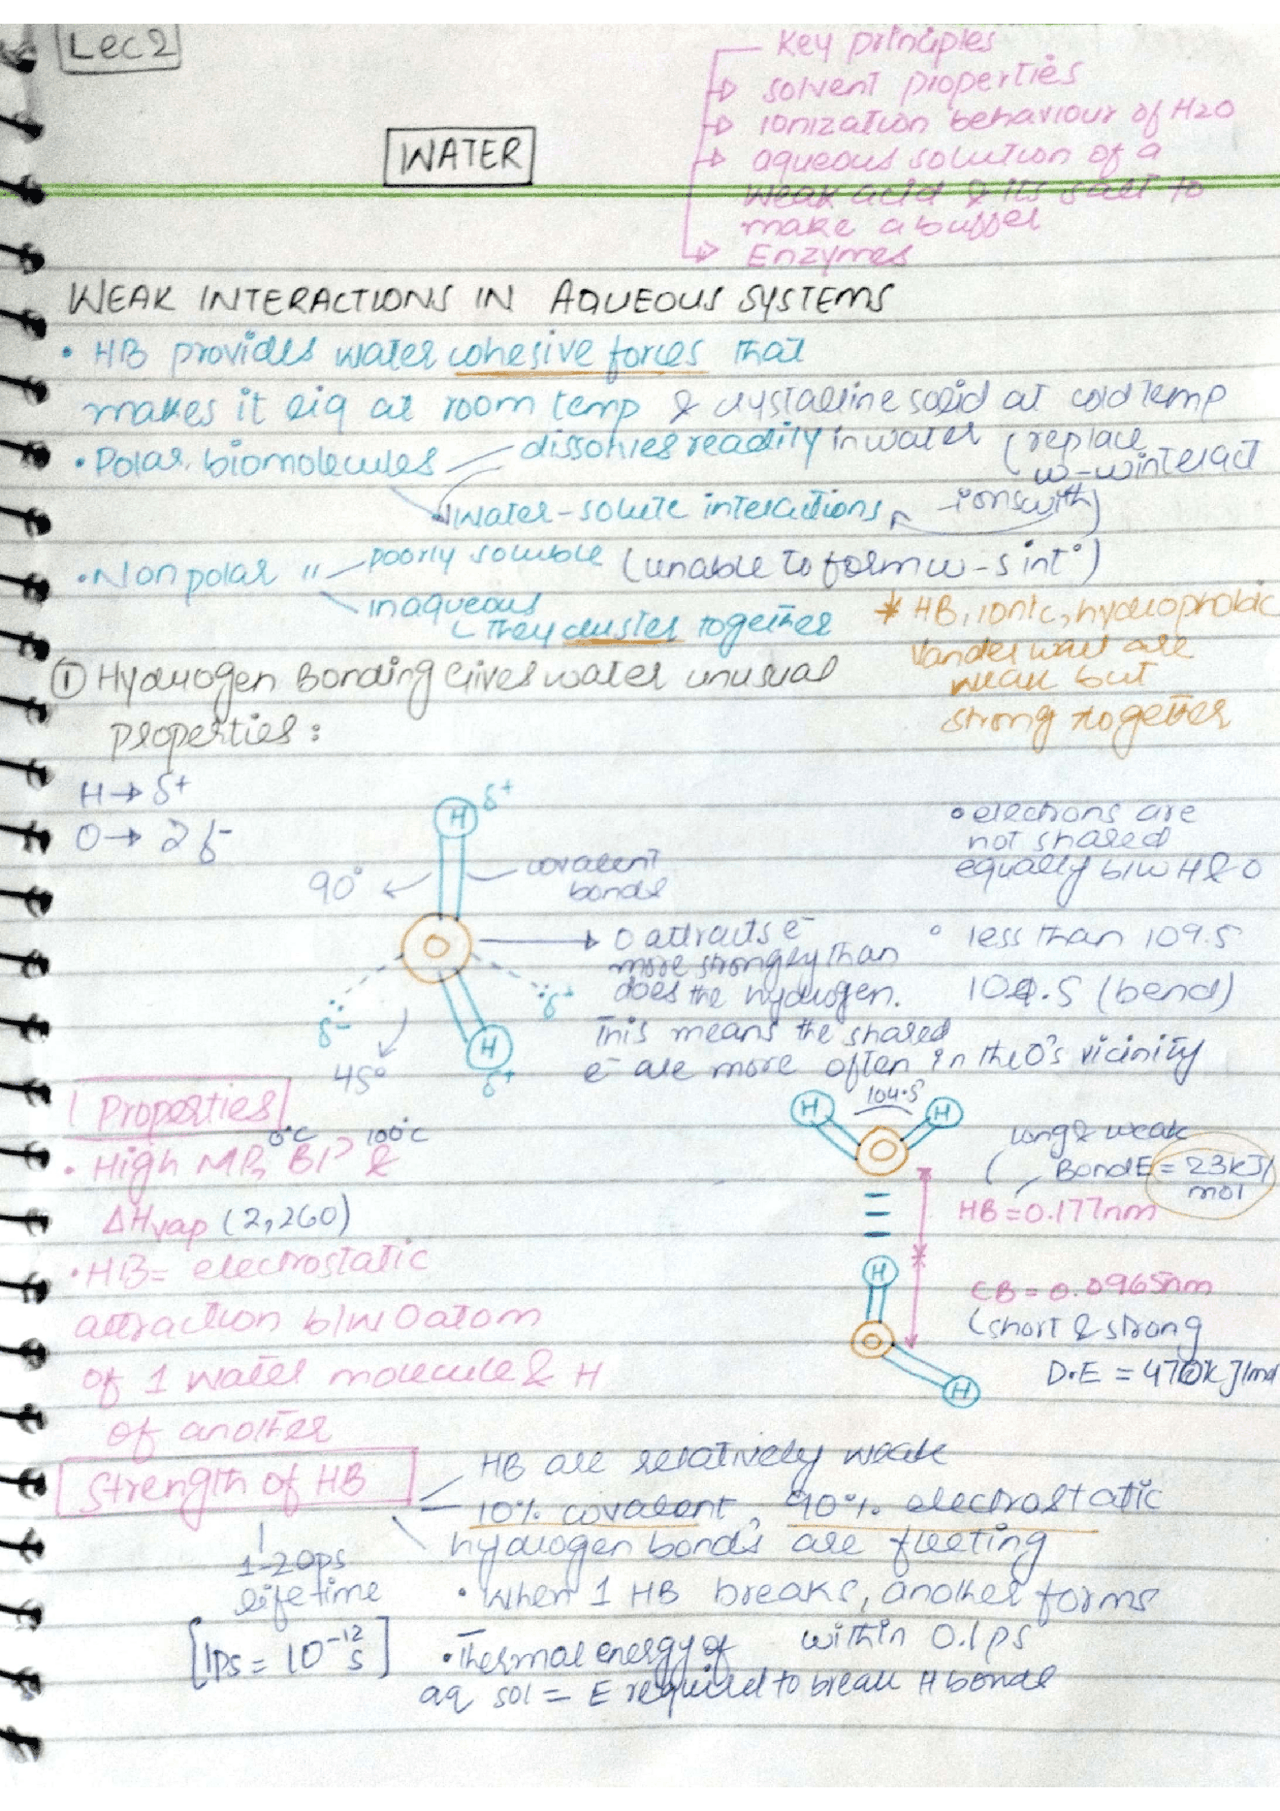 Lec 2
Key principles
→ solvent properties
→ ionization behaviour of H2O
→ aqueous solution of a
weak acid & its salt to
make a buffer
→ Enzymes
WATER
WEAK INTERACTIONS IN AQUEOUS SYSTEMS
• HB provides water cohesive forces that
makes it liq at room temp & crystalline solid at cold temp
• Polar biomolecules — dissolves readily in water (replace
w-w interact
ions with)
water-solute interactions
• Non polar " — poorly soluble (unable to form w-s int°)
in aqueous
they cluster together
* HB, ionic, hydrophobic
Vander waal are
weak but
strong together
① Hydrogen Bonding Gives water unusual
properties:
H → δ+
O → 2δ-
H δ+
90°
covalent
bonds
O
→ O attracts e-
more strongly than
does the hydrogen.
This means the shared
e- are more often in the O's vicinity
δ-
δ-
45°
H
δ+
• electrons are
not shared
equally b/w H & O
° less than 109.5
104.5 (bend)
Properties
• High MP, BP &
0°C 100°C
ΔHvap (2,260)
• HB = electrostatic
attraction b/w O atom
of 1 water molecule & H
of another
H 104.5 H
O
long & weak
Bond E = 23kJ/
mol
HB = 0.177nm
H
CB = 0.0965nm
(short & strong
O
D.E = 470kJ/mol
H
Strength of HB
HB are relatively weak
10% covalent, 90% electrostatic
hydrogen bonds are fleeting
1-20ps
lifetime
[1ps = 10-12 s]
• When 1 HB breaks, another forms
within 0.1ps
• Thermal energy of
aq sol = E required to break H bonds